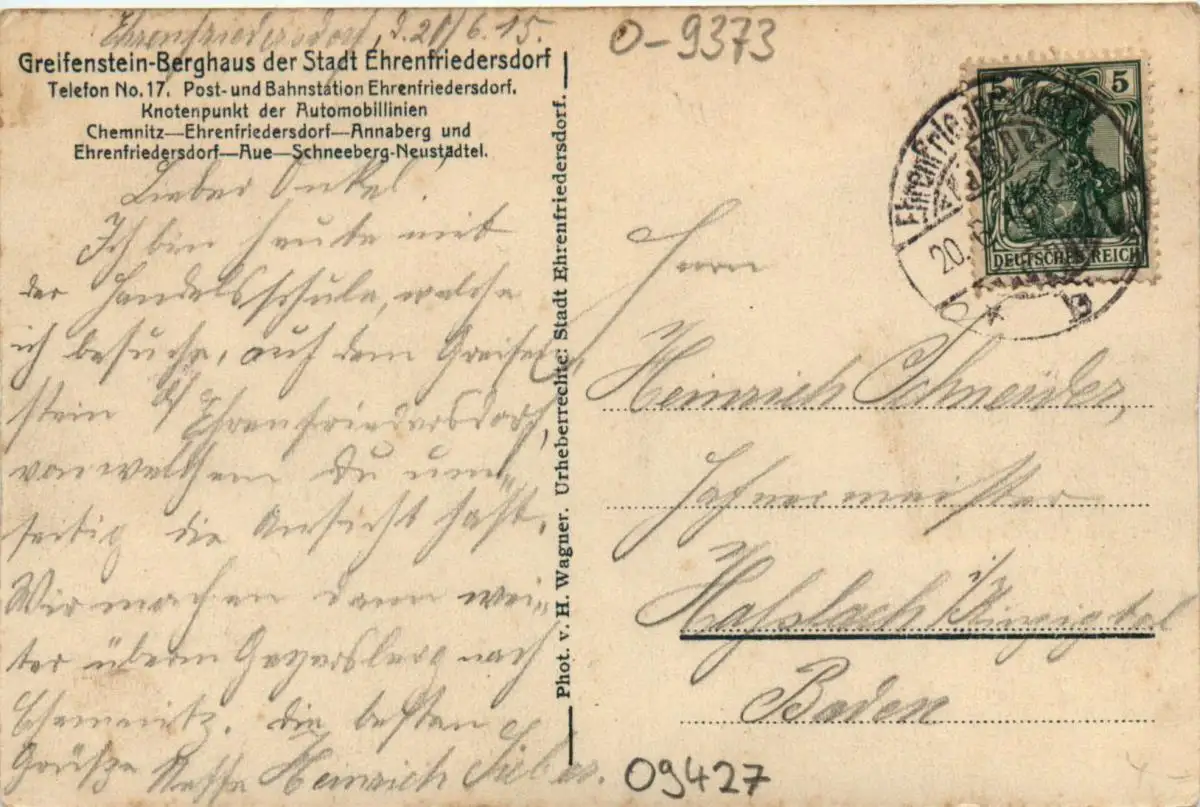 Ehrenfriedersdorf, d. 20/6. 15.
Greifenstein-Berghaus der Stadt Ehrenfriedersdorf
Telefon No. 17. Post- und Bahnstation Ehrenfriedersdorf.
Knotenpunkt der Automobillinien
Chemnitz—Ehrenfriedersdorf—Annaberg und
Ehrenfriedersdorf—Aue—Schneeberg-Neustädtel.
Lieber Onkel!
Ich bin heute mit
der Handelsschule, welche
ich besuche, auf dem Greifen-
stein b/ Ehrenfriedersdorf,
von welchem Du um-
seitig die Ansicht hast.
Wir machen dann wei-
ter überm nach
Chemnitz. Die besten
Grüße Neffe Heinrich
Phot. v. H. Wagner. Urheberrechte: Stadt Ehrenfriedersdorf.
O-9373
5 5
DEUTSCHES REICH
Ehrenfrieders
20.
* b
Herrn
Heinrich Schneider,
Hafnermeister
Haslach i/Kinzigtal
Baden
09427